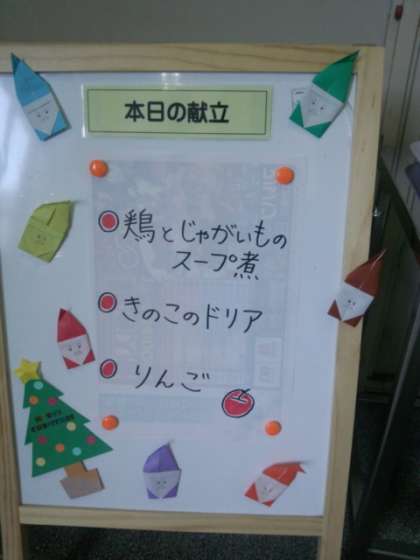 本日の献立
鶏とじゃがいもの
スープ煮
きのこのドリア
りんご